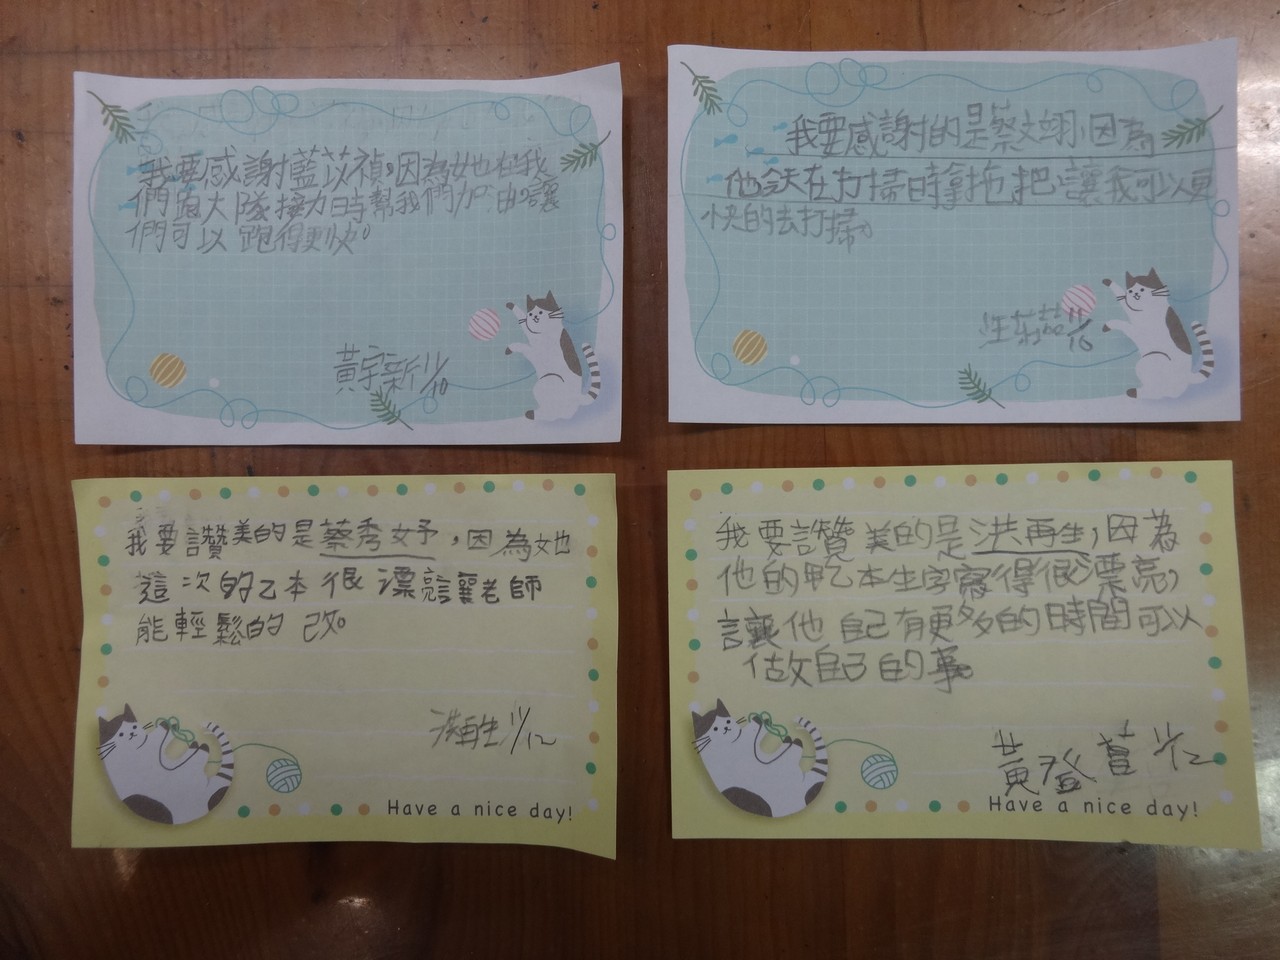 我要感謝藍苡禎,因為她在我
們跑大隊接力時幫我們加油,讓
們可以跑得更快。
黃宇新 11/10
我要感謝的是蔡文翊,因為
他今天在打掃時拿拖把,讓我可以更
快的去打掃。
11/16
我要讚美的是蔡秀妤,因為她
這次的乙本很漂亮讓老師
能輕鬆的改。
洪再生 11/12
Have a nice day!
我要讚美的是洪再生,因為
他的甲乙本生字寫得很漂亮,
讓他自己有更多的時間可以
做自己的事。
黃登 11/12
Have a nice day!